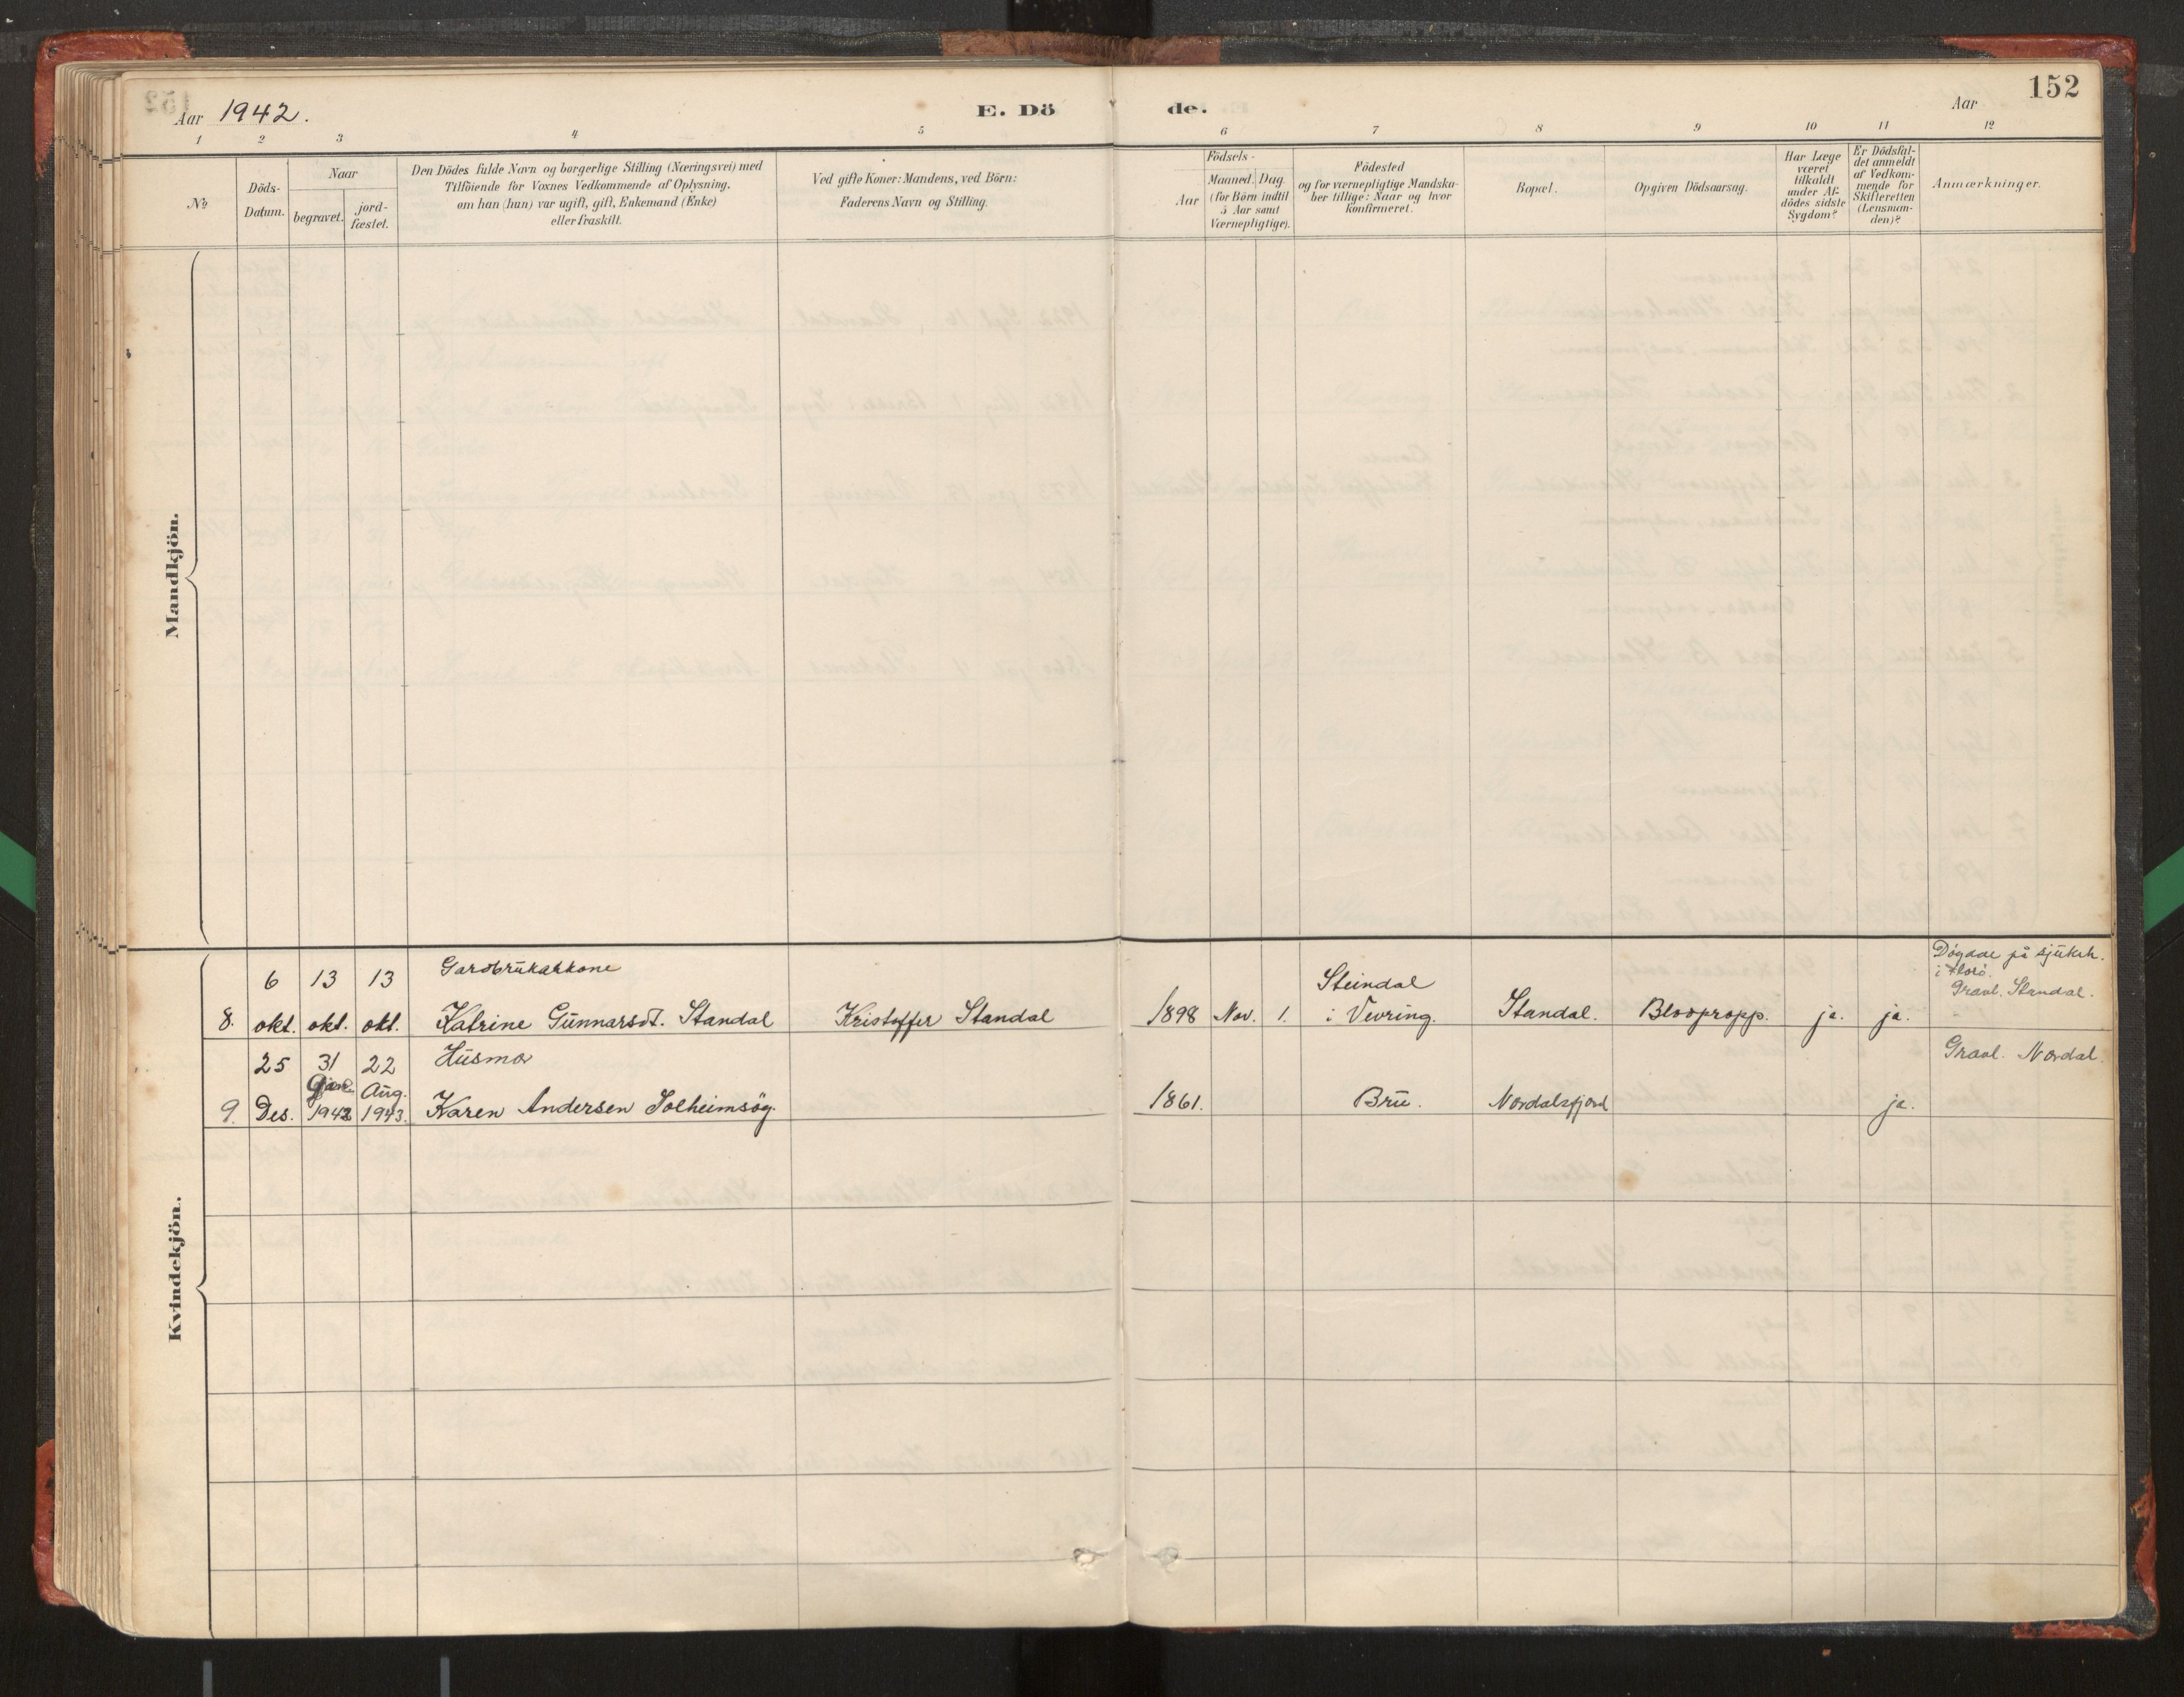 152
Aar 1942.
E. Dö de.
Aar
1 2 3 4 5 6 7 8 9 10 11 12
No
Döds-
Datum.
Naar
begravet.
jord-
fæstet.
Den Dödes fulde Navn og borgerlige Stilling (Næringsvei) med
Tilföiende for Voxnes Vedkommende af Oplysning,
om han (hun) var ugift, gift, Enkemand (Enke)
eller fraskilt.
Ved gifte Koner: Mandens, ved Börn:
Faderens Navn og Stilling.
Födsels-
Aar
Maaned. Dag.
(for Börn indtil
5 Aar samt
Værnepligtige).
Födested
og for værnepligtige Mandsku-
ber tillige: Naar og hvor
konfirmeret.
Bopæl.
Opgiven Dödsaarsag.
Har Læge
været
tilkaldt
under Af-
dödes sidste
Sygdom?
Er Dödsfal-
det anmeldt
af Vedkom-
mende for
Skifteretten
(Lensman-
den)?
Anmærkninger.
Mandkjön.
Kvindekjön.
6 13 13 Gardbrukarkone Steindal Døgdde på sjukeh.
i Florø.
Gravl. Standal.
8. okt. okt. okt. Katrine Gunnarsdt. Standal Kristoffer Standal 1898 Nov. 1. i Vevring. Standal. Blodpropp. ja. ja.
25 31 22 Husmor Gravl. Nordal.
jan. Aug.
9. Des. 1942 1943. Karen Andersen Solheimsög. 1861. Bru. Nordalsfjord ja.